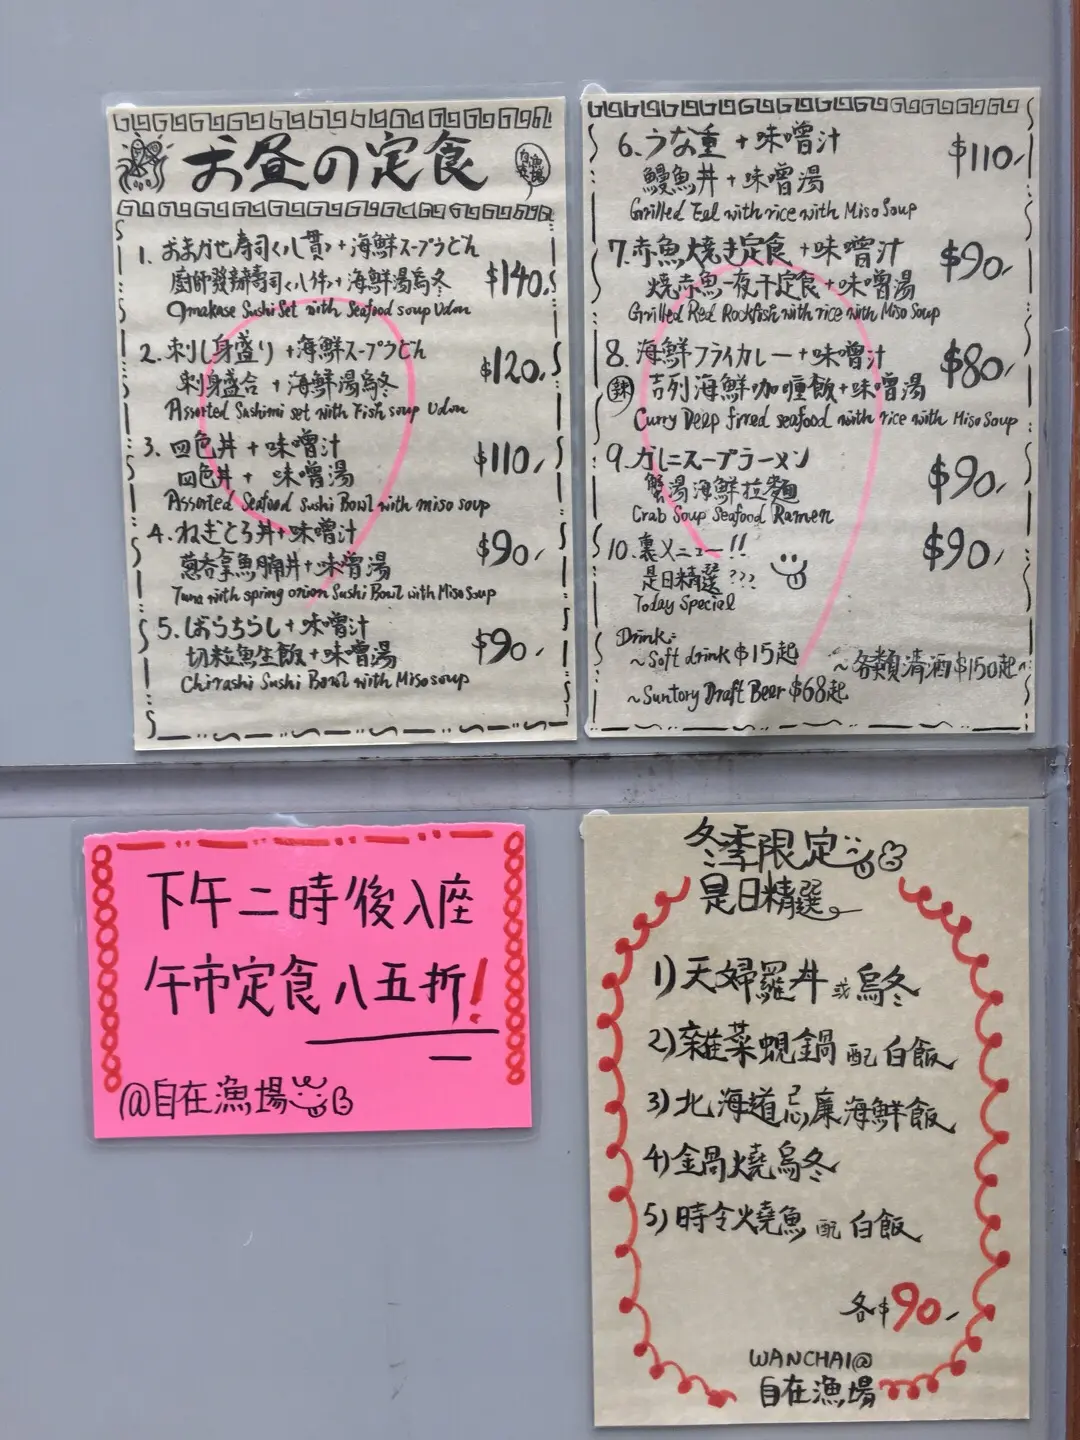 お昼の定食
1. おまかせ寿司<八貫>+海鮮スープうどん
廚師發辦壽司<八件>+海鮮湯烏冬
Omakase Sushi Set with Seafood soup Udon
$140.
2. 刺し身盛り+海鮮スープうどん
刺身盛合 + 海鮮湯烏冬
Assorted Sashimi set with Fish soup Udon
$120.
3. 四色丼+味噌汁
四色丼 + 味噌湯
Assorted Seafood Sushi Bowl with miso soup
$110.
4. ねぎとろ丼+味噌汁
蔥吞拿魚腩丼+味噌湯
Tuna with spring onion Sushi Bowl with Miso Soup
$90.
5. ばらちらし+味噌汁
切粒魚生飯+味噌湯
Chirashi Sushi Bowl with Miso soup
$90.
6. うな重 + 味噌汁
鰻魚丼 + 味噌湯
Grilled Eel with rice with Miso Soup
$110.
7. 赤魚焼き定食 +味噌汁
燒赤魚一夜干定食+味噌湯
Grilled Red Rockfish with rice with Miso Soup
$90.
8. 海鮮フライカレー+味噌汁
吉列海鮮咖喱飯+味噌湯
Curry Deep fired seafood with rice with Miso Soup
$80.
9. かにスープラーメン
蟹湯海鮮拉麵
Crab Soup Seafood Ramen
$90.
10. 裏メニュー!!
是日精選???
Today Special
$90.
Drink:
~Soft drink $15起
~各類清酒$150起
~Suntory Draft Beer $68起
下午二時後入座
午市定食八五折!
@自在漁場
冬季限定
是日精選
1)天婦羅丼或烏冬
2)雜菜蜆鍋 配 白飯
3)北海道忌廉海鮮飯
4)鍋燒烏冬
5)時令燒魚 配 白飯
各$90.
WANCHAI@
自在漁場